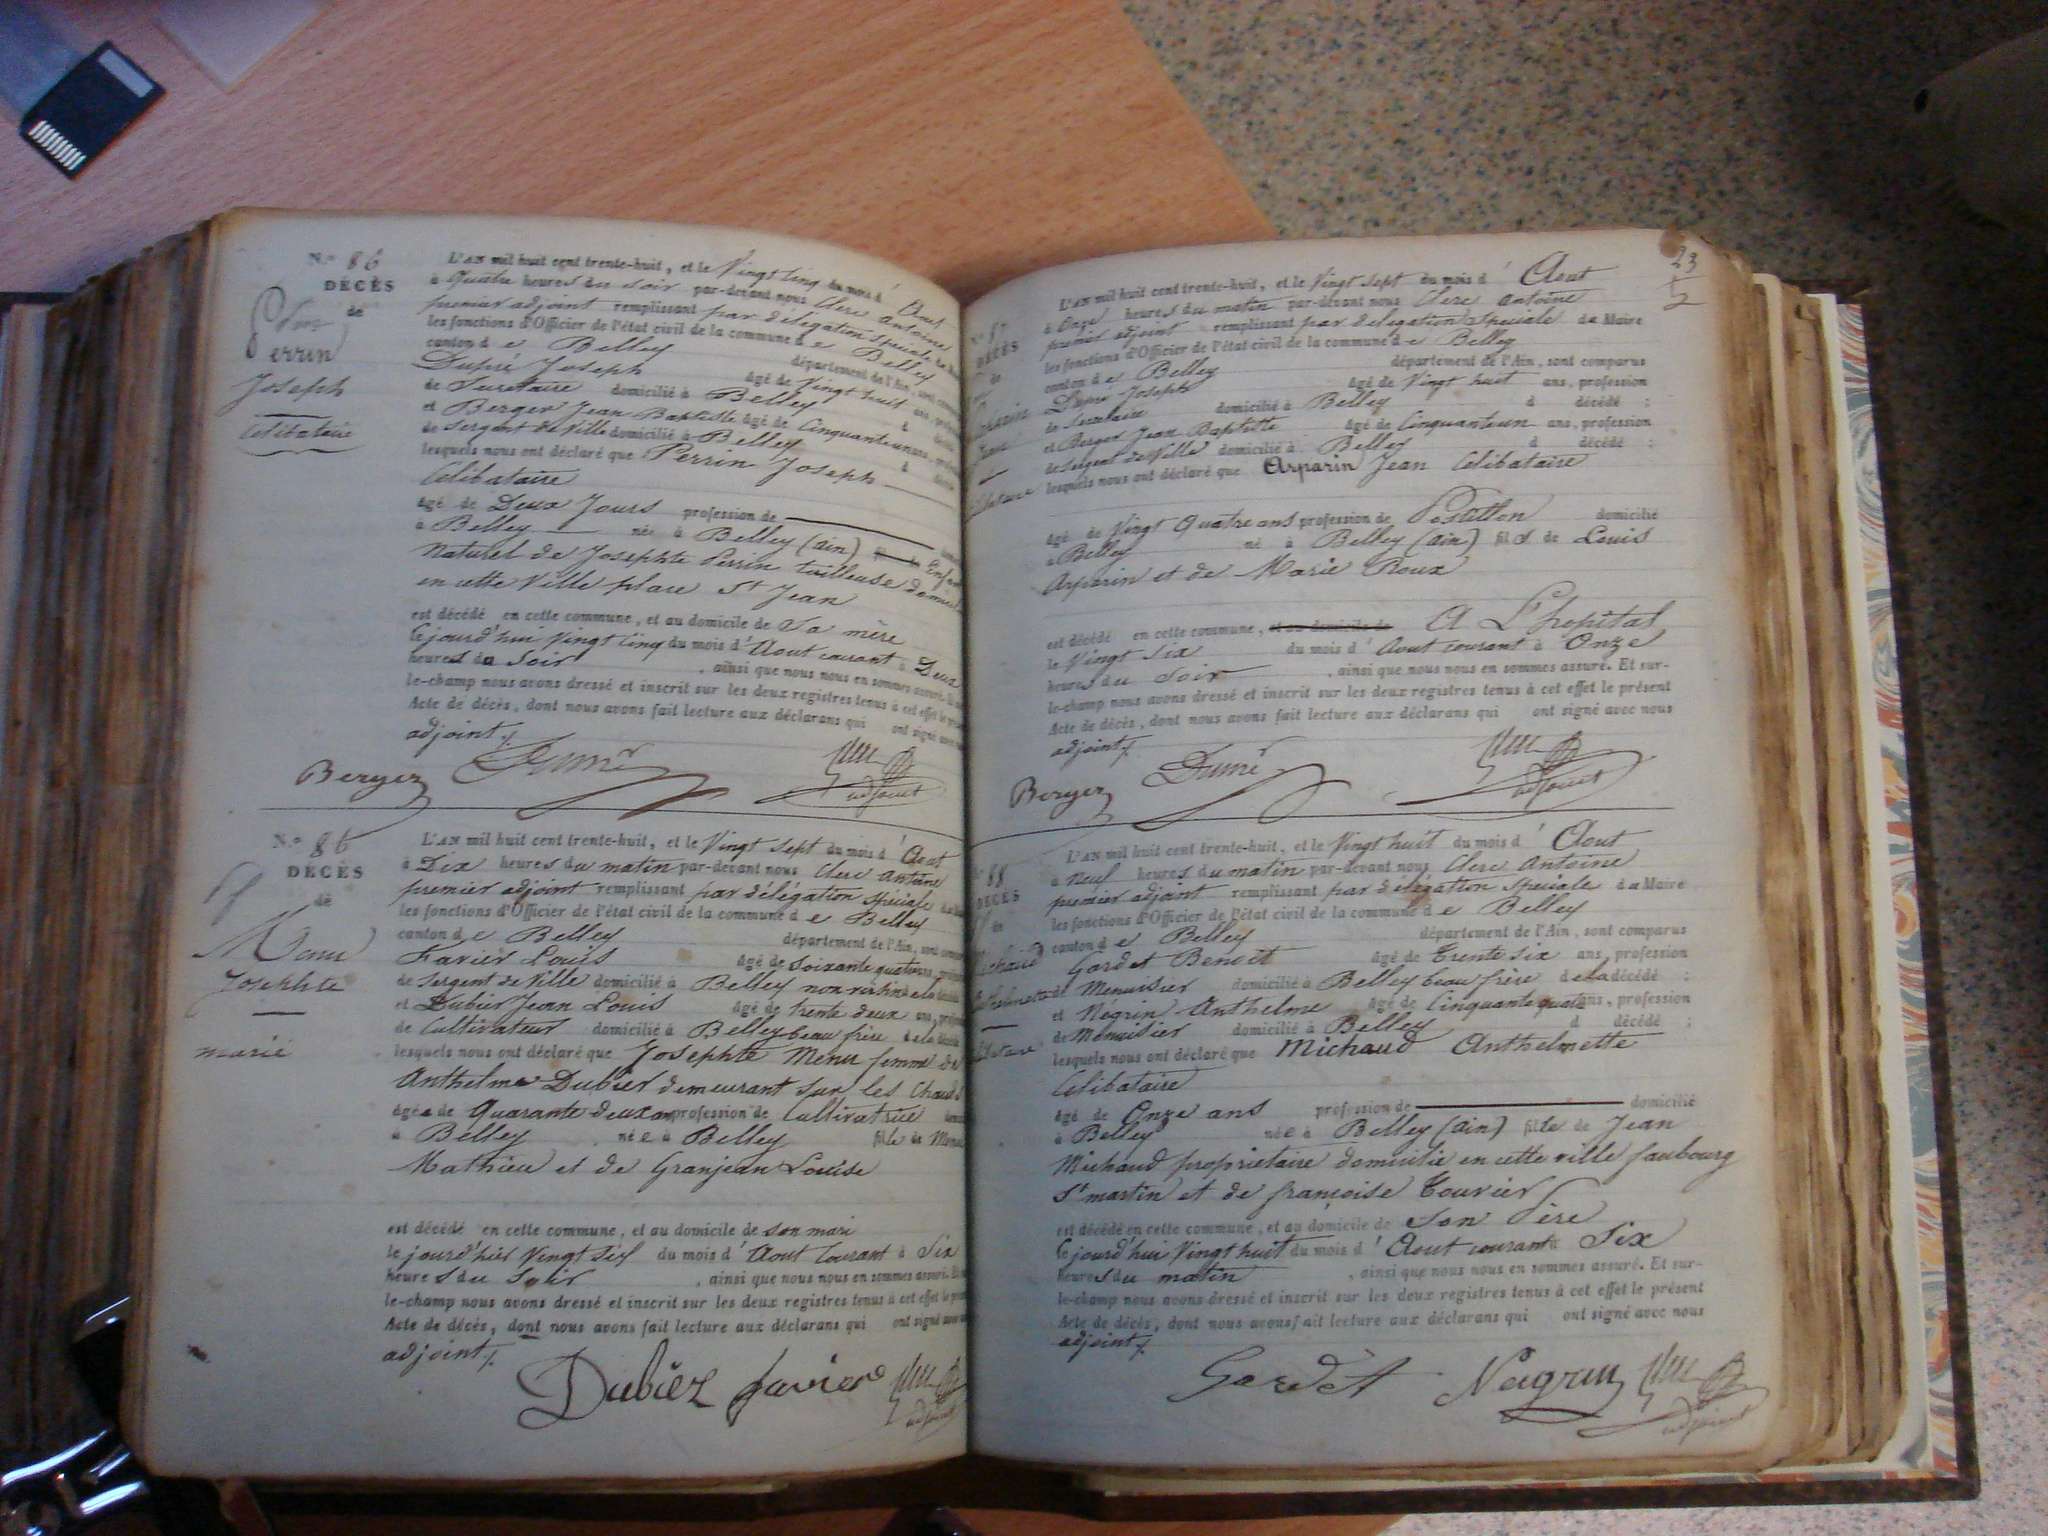 N.° 86
DÉCÈS
de
Perrin
Joseph
Célibataire
L'AN mil huit cent trente-huit, et le Vingt Cinq du mois d'Aout
à Quatre heures du soir par-devant nous Clerc Antoine
premier adjoint remplissant par délégation speciale
les fonctions d'Officier de l'état civil de la commune de Belley
canton de Belley département de l'Ain, sont
Dupré Joseph âgé de Vingt huit ans,
de Secrétaire domicilié à Belley d
et Berger Jean Baptiste âgé de Cinquante un ans,
de Sergent de Ville domicilié à Belley d
lesquels nous ont déclaré que Perrin Joseph
Célibataire
âgé de Deux Jours profession de
à Belley né à Belley (ain)
Naturel de Josephte Perrin tailleuse
en cette Ville place St Jean
est décédé en cette commune, et au domicile de Sa mère
Cejourd'hui Vingt Cinq du mois d'Aout courant à Deux
heures du Soir, ainsi que nous nous en sommes assuré.
le-champ nous avons dressé et inscrit sur les deux registres tenus à cet effet le
Acte de décès, dont nous avons fait lecture aux déclarans qui ont signé avec
adjoint
Berger
adjoint
N.° 86
DÉCÈS
de
Menu
Josephte
marié
L'AN mil huit cent trente-huit, et le Vingt Sept du mois d'Aout
à Dix heures du matin par-devant nous Clerc Antoine
premier adjoint remplissant par délégation spéciale
les fonctions d'Officier de l'état civil de la commune de Belley
canton de Belley département de l'Ain, sont
Favier Louis âgé de Soixante quatre
de Sergent de Ville domicilié à Belley non
et Dubier Jean Louis âgé de trente deux ans,
de Cultivateur domicilié à Belley beau frère de la
lesquels nous ont déclaré que Josephte Menu femme de
Anthelme Dubier demeurant sur les
âgée de Quarante deux ans profession de Cultivatrice
à Belley née à Belley fille de
Mathieu et de Granjean Louise
est décédé en cette commune, et au domicile de son mari
le jourd'hier Vingt Six du mois d'Aout Courant à Six
heures du Soir, ainsi que nous nous en sommes assuré.
le-champ nous avons dressé et inscrit sur les deux registres tenus à cet effet le
Acte de décès, dont nous avons fait lecture aux déclarans qui ont signé avec
adjoint
Dubiez favier
adjoint
23
DÉCÈS
de
L'AN mil huit cent trente-huit, et le Vingt sept du mois d'Aout
à Onze heures du matin par-devant nous Clerc Antoine
premier adjoint remplissant par délégation speciale du Maire
les fonctions d'Officier de l'état civil de la commune de Belley
canton de Belley département de l'Ain, sont comparus
Dupré Joseph âgé de Vingt huit ans, profession
de Secretaire domicilié à Belley d décédé ;
et Berger Jean Baptiste âgé de Cinquante un ans, profession
de Sergent de Ville domicilié à Belley d décédé ;
lesquels nous ont déclaré que Arparin Jean Célibataire
âgé de Vingt Quatre ans profession de Postillon domicilié
à Belley né à Belley (ain) fils de Louis
Arparin et de Marie Roux
est décédé en cette commune, et au domicile de A L'hopital
le Vingt Six du mois d'Aout courant à Onze
heures du Soir, ainsi que nous nous en sommes assuré. Et sur-
le-champ nous avons dressé et inscrit sur les deux registres tenus à cet effet le présent
Acte de décès, dont nous avons fait lecture aux déclarans qui ont signé avec nous
adjoint
Berger
adjoint
88
DÉCÈS
de
Michaud
Anthelmette
L'AN mil huit cent trente-huit, et le Vingt huit du mois d'Aout
à Neuf heures du matin par-devant nous Clerc Antoine
premier adjoint remplissant par délégation speciale du Maire
les fonctions d'Officier de l'état civil de la commune de Belley
canton de Belley département de l'Ain, sont comparus
Gardet Benoit âgé de Trente Six ans, profession
de Menuisier domicilié à Belley beau frère de la décédé ;
et Négrin Anthelme âgé de Cinquante quatre ans, profession
de Menuisier domicilié à Belley d décédé ;
lesquels nous ont déclaré que Michaud Anthelmette
Célibataire
âgé de Onze ans profession de domicilié
à Belley née à Belley (ain) fille de Jean
Michaud propriétaire domicilié en cette ville faubourg
St martin et de françoise Touvier
est décédé en cette commune, et au domicile de Son Père
Cejourd'hui Vingt huit du mois d'Aout courant à Six
heures du matin, ainsi que nous nous en sommes assuré. Et sur-
le-champ nous avons dressé et inscrit sur les deux registres tenus à cet effet le présent
Acte de décès, dont nous avons fait lecture aux déclarans qui ont signé avec nous
adjoint
Gardet Neigrin
adjoint